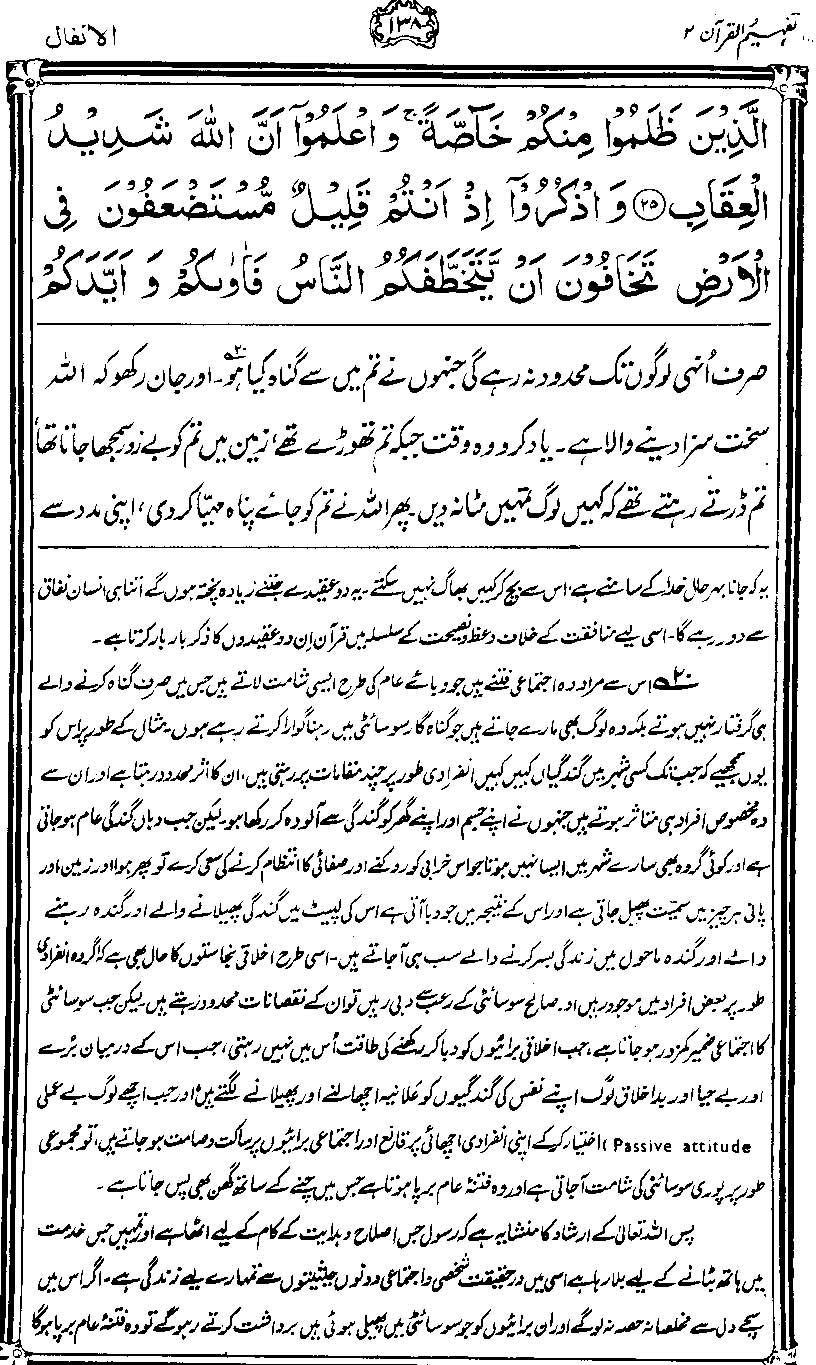 تفہیم القرآن ۲
۱۳۸
الانفال
الَّذِيْنَ ظَلَمُوْا مِنْكُمْ خَآصَّةً ۚ وَاعْلَمُوْٓا اَنَّ اللّٰهَ شَدِيْدُ
الْعِقَابِ ﴿۲۵﴾ وَاذْكُرُوْٓا اِذْ اَنْتُمْ قَلِيْلٌ مُّسْتَضْعَفُوْنَ فِى
الْاَرْضِ تَخَافُوْنَ اَنْ يَّتَخَطَّفَكُمُ النَّاسُ فَاٰوٰىكُمْ وَ اَيَّدَكُمْ
صرف اُنہی لوگوں تک محدود نہ رہے گی جنہوں نے تم میں سے گناہ کیا ہو۲۰؎۔ اور جان رکھو کہ اللہ
سخت سزا دینے والا ہے۔ یاد کرو وہ وقت جبکہ تم تھوڑے تھے، زمین میں تم کو بے زور سمجھا جاتا تھا،
تم ڈرتے رہتے تھے کہ کہیں لوگ تمہیں مٹا نہ دیں۔ پھر اللہ نے تم کو جائے پناہ مہیّا کر دی، اپنی مدد سے
یہ کہ جانا بہرحال خدا کے سامنے ہے، اس سے بچ کر کہیں بھاگ نہیں سکتے۔ یہ دو عقیدے جتنے زیادہ پختہ ہوں گے اتنا ہی انسان نفاق
سے دور رہے گا۔ اسی لیے منافقت کے خلاف وعظ و نصیحت کے سلسلہ میں قرآن اِن دو عقیدوں کا ذکر بار بار کرتا ہے۔
۲۰؎ اس سے مراد وہ اجتماعی فتنے ہیں جو وبائے عام کی طرح ایسی شامت لاتے ہیں جس میں صرف گناہ کرنے والے
ہی گرفتار نہیں ہوتے بلکہ وہ لوگ بھی مارے جاتے ہیں جو گناہ گار سوسائٹی میں رہنا گوارا کرتے رہے ہوں۔ مثال کے طور پر اس کو
یوں سمجھیے کہ جب تک کسی شہر میں گندگیاں کہیں کہیں انفرادی طور پر چند مقامات پر رہتی ہیں، ان کا اثر محدود رہتا ہے اور ان سے
وہ مخصوص افراد ہی متاثر ہوتے ہیں جنہوں نے اپنے جسم اور اپنے گھر کو گندگی سے آلودہ کر رکھا ہو۔ لیکن جب وہاں گندگی عام ہو جاتی
ہے اور کوئی گروہ بھی سارے شہر میں ایسا نہیں ہوتا جو اس خرابی کو روکنے اور صفائی کا انتظام کرنے کی سعی کرے تو پھر ہوا اور زمین اور
پانی ہر چیز میں سمیّت پھیل جاتی ہے اور اس کے نتیجہ میں جو وبا آتی ہے اس کی لپیٹ میں گندگی پھیلانے والے اور گندہ رہنے
والے اور گندہ ماحول میں زندگی بسر کرنے والے سب ہی آ جاتے ہیں۔ اسی طرح اخلاقی نجاستوں کا حال بھی ہے کہ اگر وہ انفرادی
طور پر بعض افراد میں موجود رہیں اور صالح سوسائٹی کے رعب سے دبی رہیں تو ان کے نقصانات محدود رہتے ہیں لیکن جب سوسائٹی
کا اجتماعی ضمیر کمزور ہو جاتا ہے، جب اخلاقی برائیوں کو دبا کر رکھنے کی طاقت اُس میں نہیں رہتی، جب اس کے درمیان بُرے
اور بے حیا اور بداخلاق لوگ اپنے نفس کی گندگیوں کو علانیہ اچھالنے اور پھیلانے لگتے ہیں، اور جب اچھے لوگ بے عملی
(Passive attitude) اختیار کر کے اپنی انفرادی اچھائی پر قانع اور اجتماعی برائیوں پر ساکت و صامت ہو جاتے ہیں، تو مجموعی
طور پر پوری سوسائٹی کی شامت آ جاتی ہے اور وہ فتنۂ عام برپا ہوتا ہے جس میں چنے کے ساتھ گھن بھی پس جاتا ہے۔
پس اللہ تعالیٰ کے ارشاد کا منشا یہ ہے کہ رسول جس اصلاح و ہدایت کے کام کے لیے اٹھا ہے اور تمہیں جس خدمت
میں ہاتھ بٹانے کے لیے بلا رہا ہے اسی میں درحقیقت شخصی و اجتماعی دونوں حیثیتوں سے تمہارے لیے زندگی ہے۔ اگر اس میں
سچے دل سے مخلصانہ حصہ نہ لو گے اور ان برائیوں کو جو سوسائٹی میں پھیلی ہوئی ہیں برداشت کرتے رہو گے تو وہ فتنۂ عام برپا ہوگا